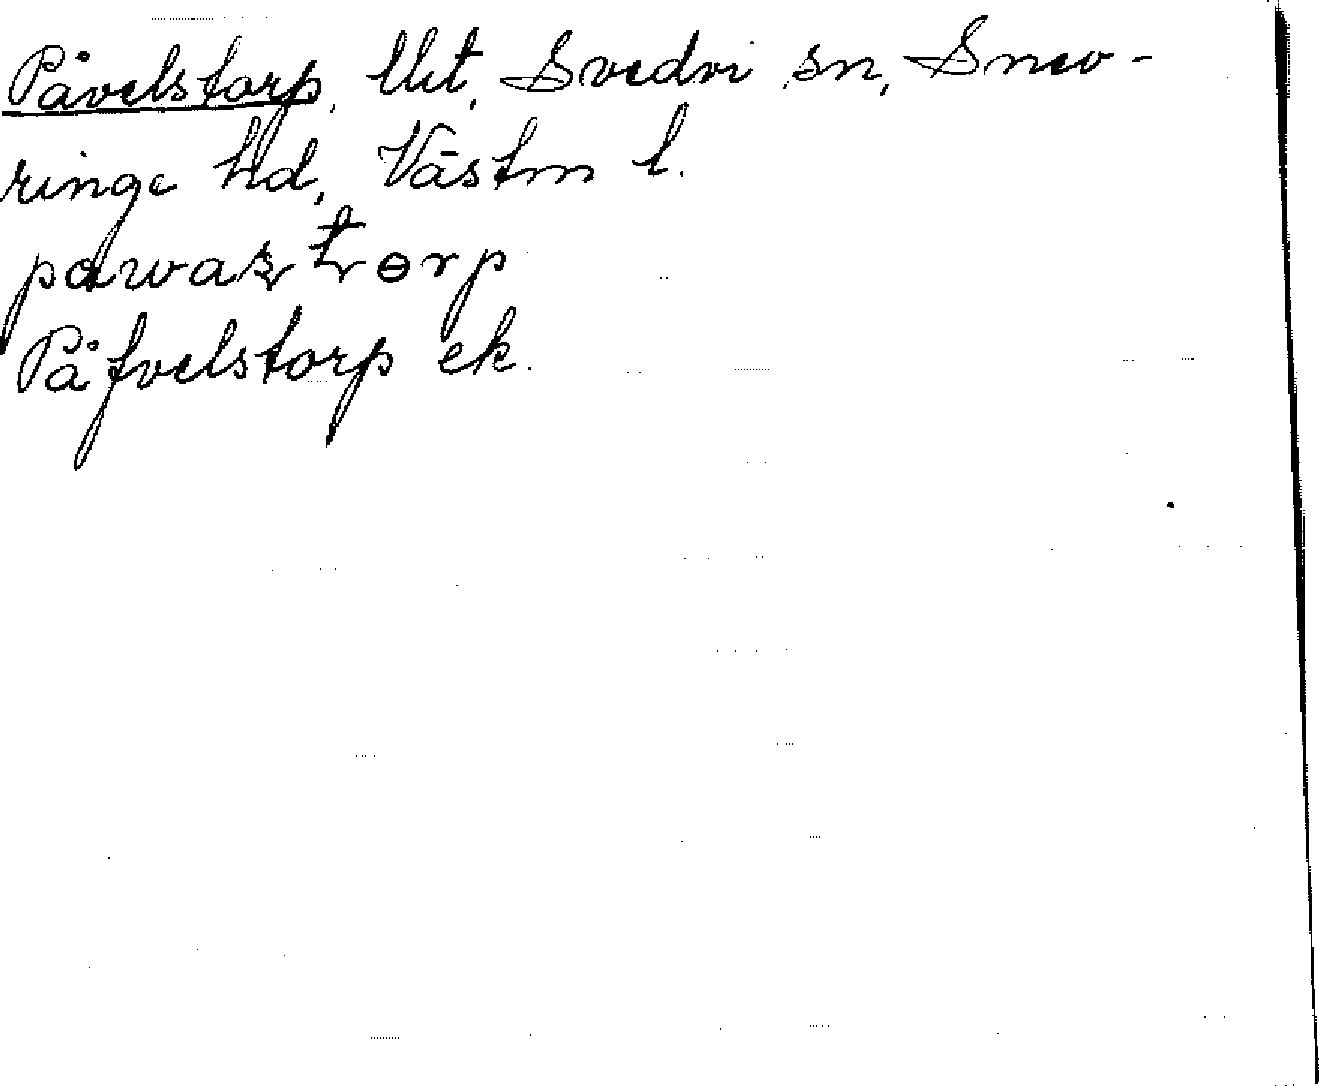 Påvelstorp, Ut, Svedvi sn, Snev-
ringe hd, Västm l.
påvastɵrp
Påfvelstorp ek.